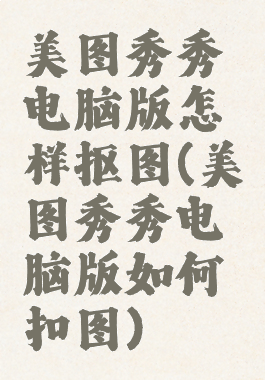 美图秀秀
电脑版怎
样抠图(美
图秀秀电
脑版如何
扣图)